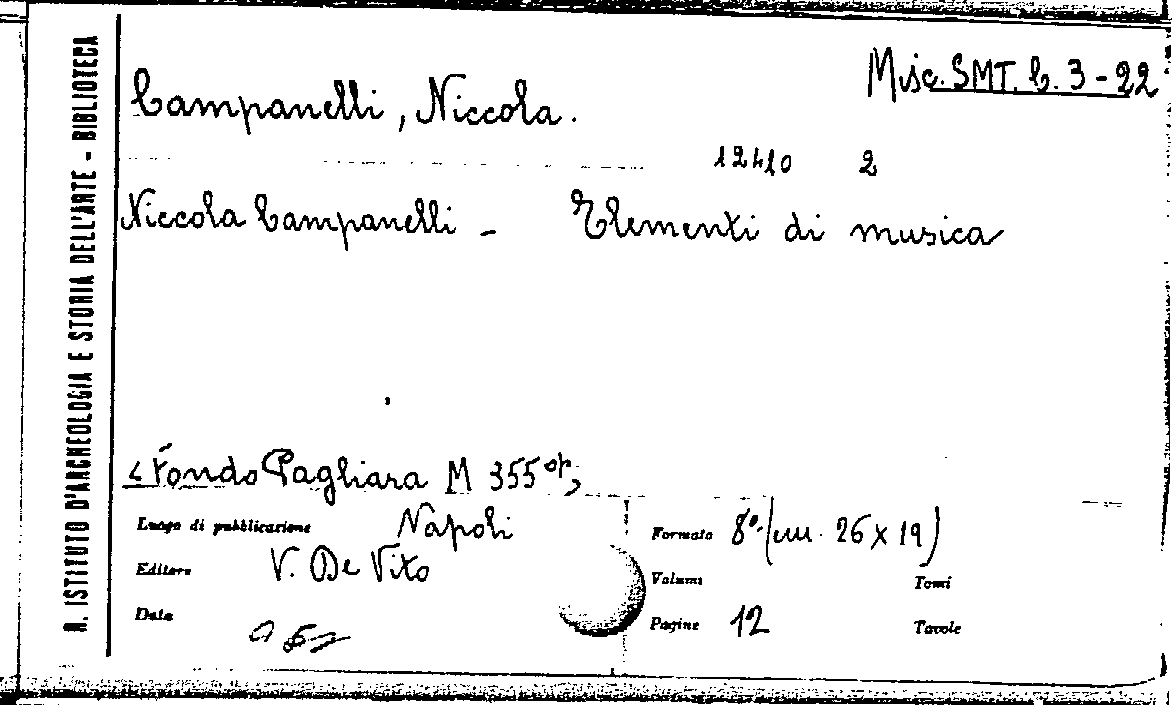 R. ISTITUTO D'ARCHEOLOGIA E STORIA DELL'ARTE - BIBLIOTECA
Misc. SMT. C. 3 - 22
Campanelli, Niccola.
12410 2
Niccola Campanelli - Elementi di musica
Fondo Pagliara M 355
Luogo di pubblicazione Napoli
Formato 8º (cm. 26 x 19)
Editore V. De Vito
Volumi
Tomi
Data
Pagine 12
Tavole